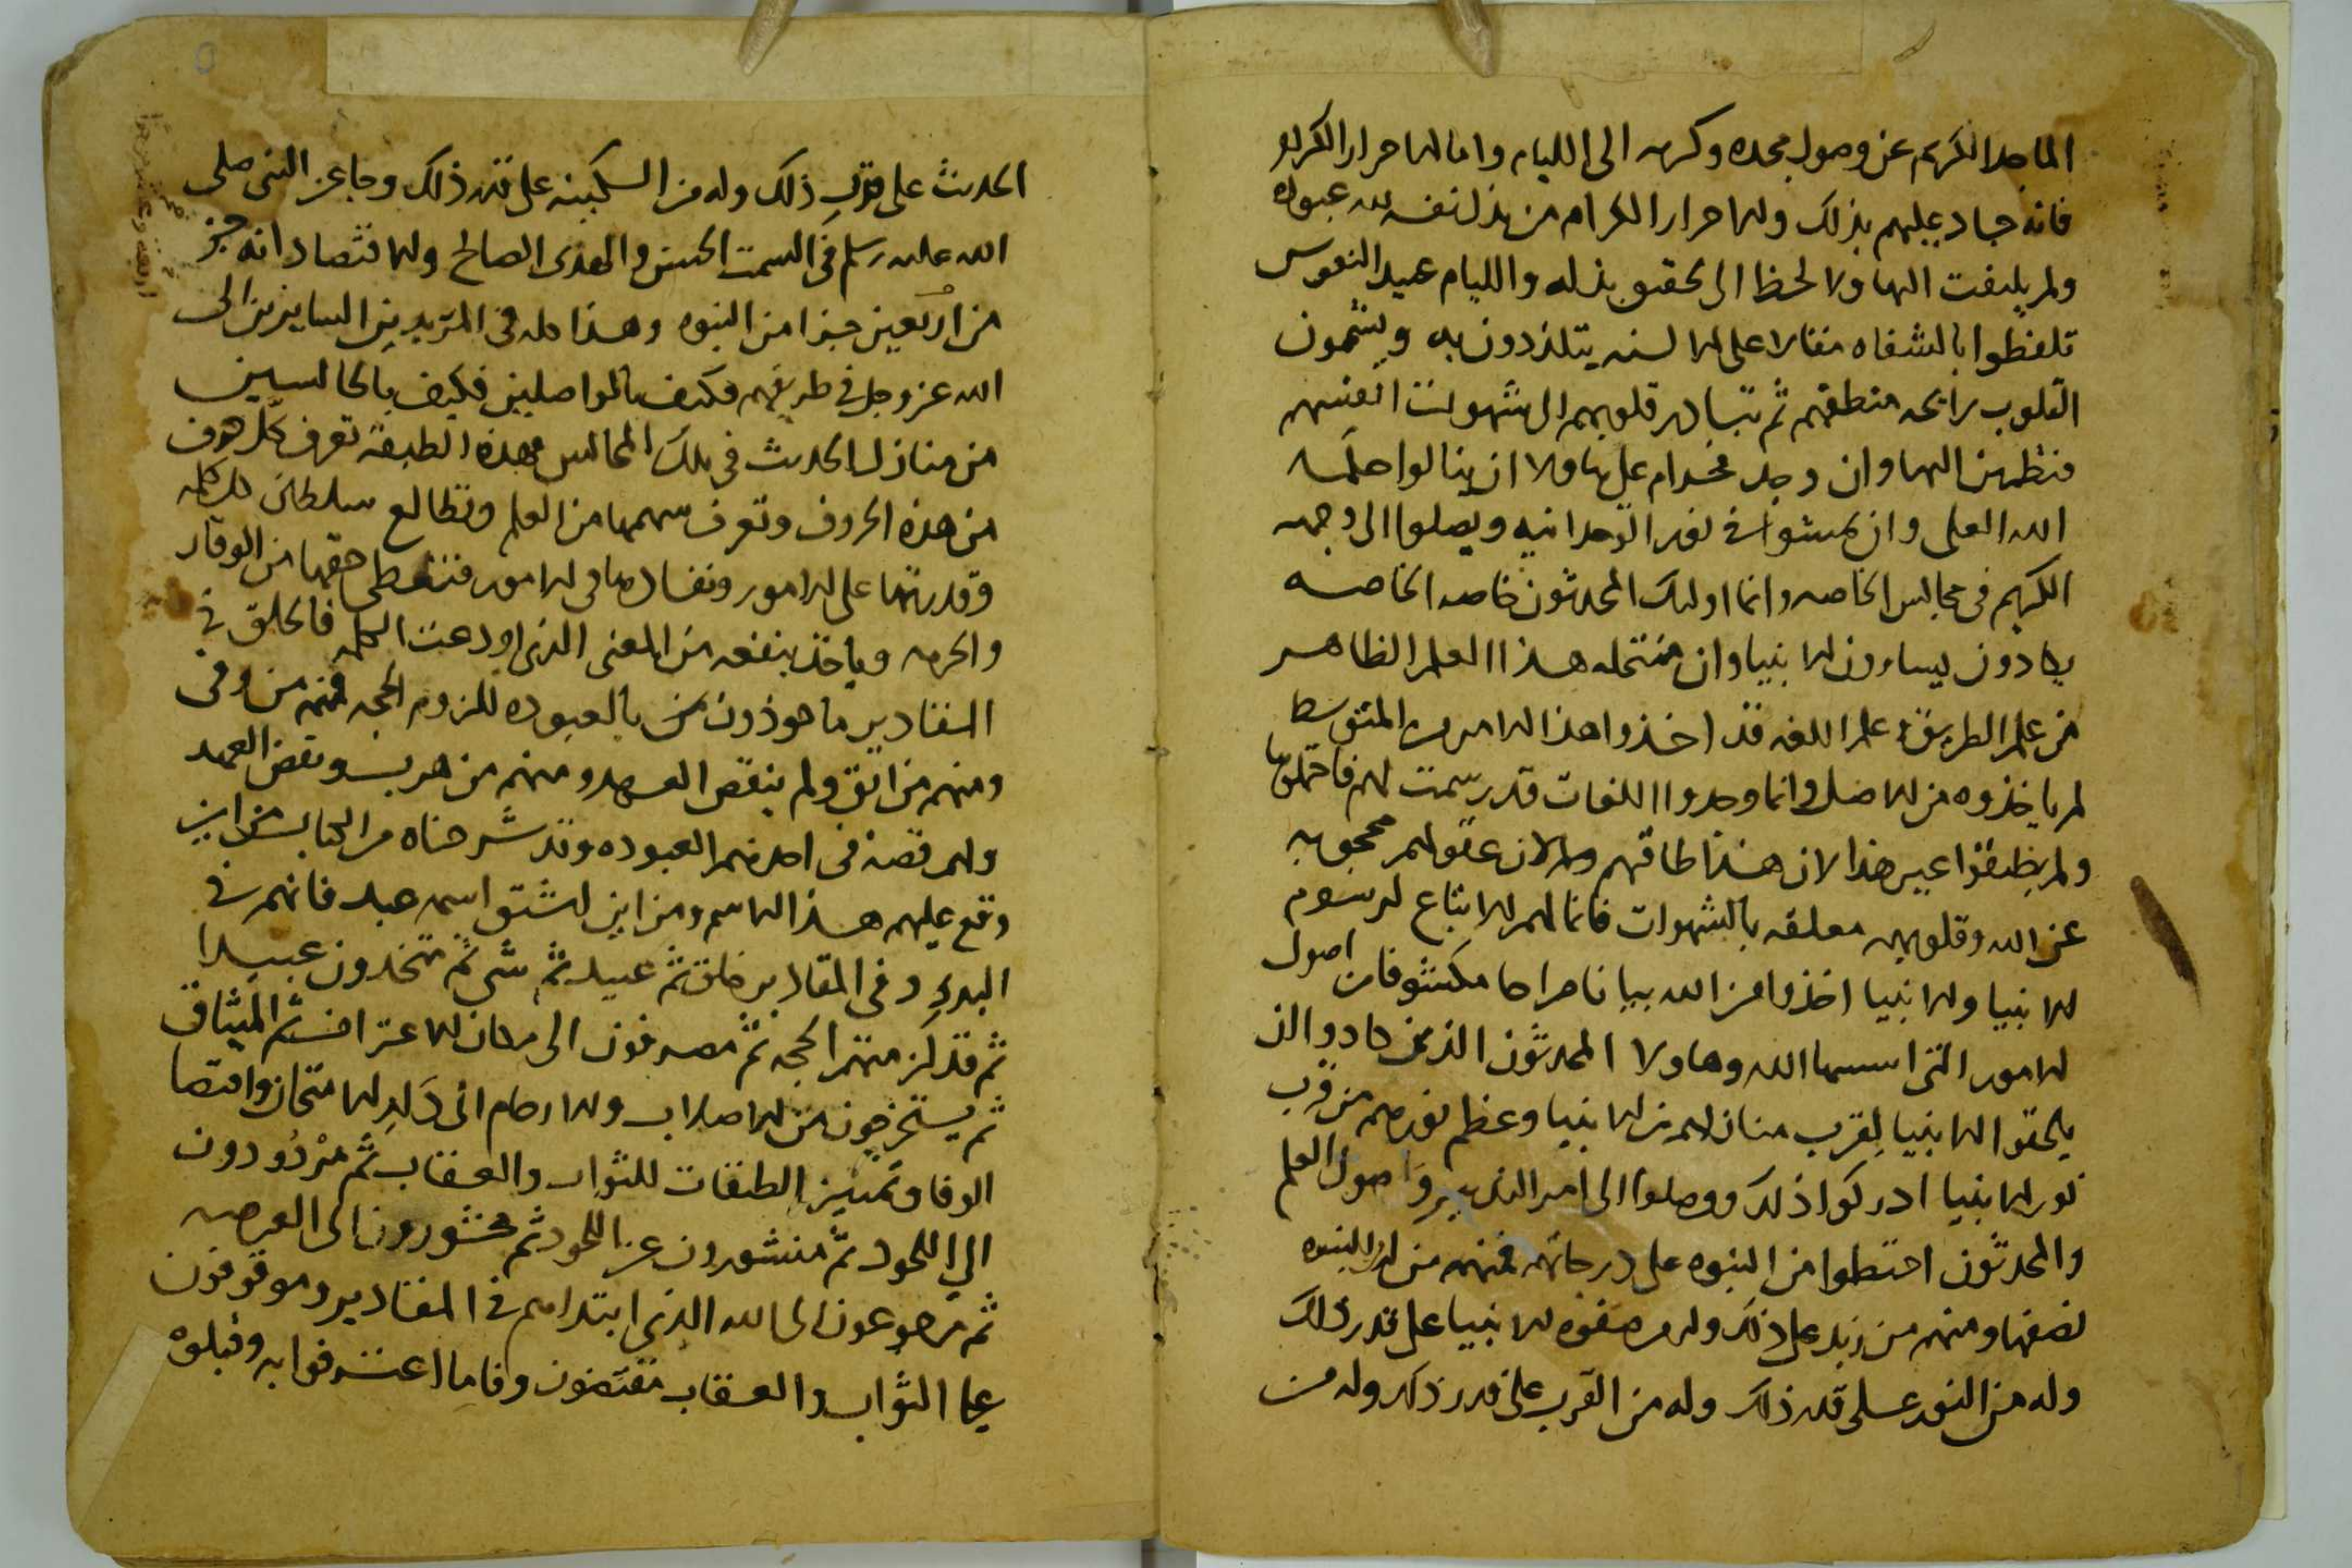 الماجد الكريم عن وصول مجده وكرمه الى الليام وانما الاحرار الكرام
فانه جاد عليهم بذلك والاحرار الكرام من بذل نفسه لله عبوده
ولم يلتفت اليها ولا لحظ الى تحقيق بذله والليام عبيد النفوس
تلفظوا بالشفاه مقالا على الالسنه يتلذذون به ويشمون
القلوب رايحه منطقهم ثم تتبادر قلوبهم الى شهوات انفسهم
الله العلى وان يمشوا فى نور الوحدانيه ويصلوا الى وجهه
الكريم فى مجالس الخاصه وانما اوليك المحدثون خاصه الخاصه
يكادون يساوون الانبيا وان منتحله هذا العلم الظاهر
من علم الطريق علم اللغه قد اخذوا هذا الامر من المتوسط
لم ياخذوه من الاصل وانما وجدوا اللغات قد رسمت لهم فاحتملوها
ولم يطيقوا غير هذا لان هذا طاقتهم ولان عقولهم محجوبه
عن الله وقلوبهم معلقه بالشهوات فانما لهم الاتباع لرسوم
الانبيا والانبيا اخذوا من الله بيانا صراحا مكشوفا من اصول
الامور التى اسسها الله وهاولا المحدثون الذين كادوا ان
يلحقوا الانبيا لقرب منازلهم من الانبيا وعظم نورهم من قرب
نور الانبيا ادركوا ذلك ووصلوا الى امر التدبير واصول العلم
والمحدثون احتظوا من النبوه على درجاتهم فمنهم من له النبوه
نصفها ومنهم من زيد على ذلك وله من صفوه الانبيا على قدر ذلك
وله من النور على قدر ذلك وله من القرب على قدر ذلك وله من
الحديث على قرب ذلك وله من السكينه على قدر ذلك وجا عن النبى صلى
الله عليه وسلم فى السمت الحسن والهدى الصالح والاقتصاد انه جز
من اربعين جزا من النبوه وهذا كله فى المريدين السايرين الى
الله عز وجل فى طريقهم فكيف بالواصلين فكيف بالجالسين
من منازل الحديث فى تلك المجالس فهذه الطبقه تعرف كل حرف
من هذه الحروف وتعرف سهمها من العلم وتطالع سلطان كل كلمه
وقدرتها على الامور ونفادها فى الامور فتعطى حقها من الوقار
والحرمه وياخذ بنفعه من المعنى الذى اودعت الكلمه فالخلق فى
المقادير ماخوذون من بالعبوده للزوم الحجه فمنهم من وفى
ومنهم من اتق ولم ينقض العهد ومنهم من هرب ونقض العهد
ولهم قصة فى اخذهم العبوده وقد شرحناه من الكتاب من اين
وقع عليهم هذا الاسم ومن اين اشتق اسم عبد فانهم فى
البدء وفى المقادير خلق ثم عبيد ثم شى ثم متخذون عبيدا
ثم قد لزمتهم الحجه ثم مصرفون الى مكان الاعتراف ثم الميثاق
ثم يستخرجون من الاصلاب والارحام الى دار الامتحان واقتضا
الوفا وتمييز الطبقات للثواب والعقاب ثم مردودون
الى اللحود ثم منشورون عن اللحود ثم محشورون الى العرصه
ثم مرجوعون الى الله الذى ابتداهم فى المقادير وموقوفون
على الثواب والعقاب مقتضون وفا ما اعترفوا به وقبلوه